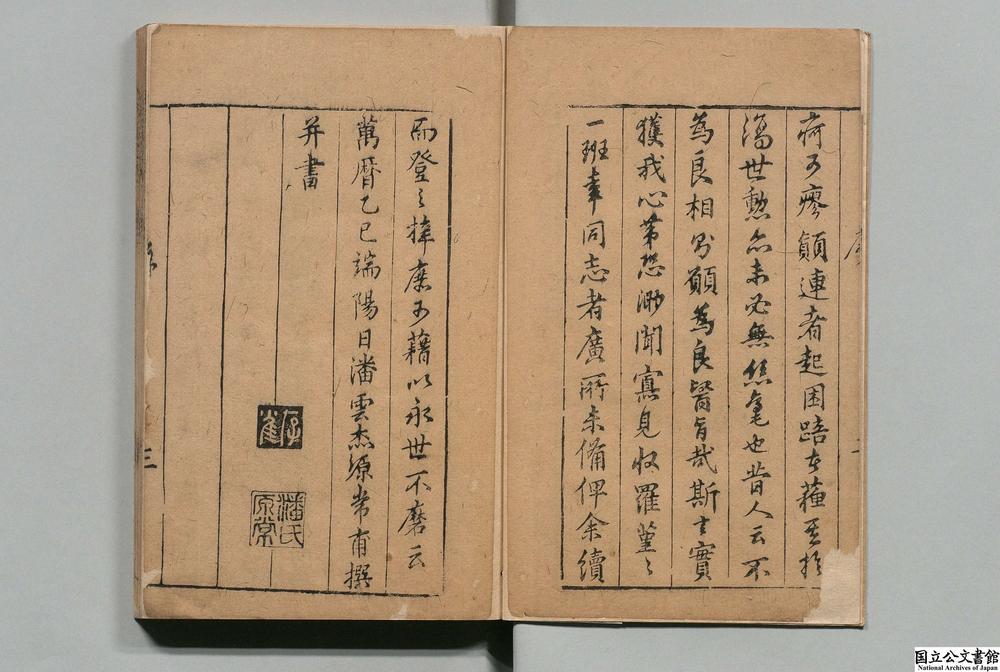 痾可瘳顛連者起困踣去薶其於
濟世勲亦未必無絲毫也昔人云不
為良相則願為良醫旨哉斯言實
獲我心第恐渺聞寡見收羅堇〻
一班幸同志者廣所未備俾余續
而登之梓庶可藉以永世不磨云
萬曆乙巳端陽日潘雲杰源常甫撰
并書
潘氏
原常
三
国立公文書館
National Archives of Japan